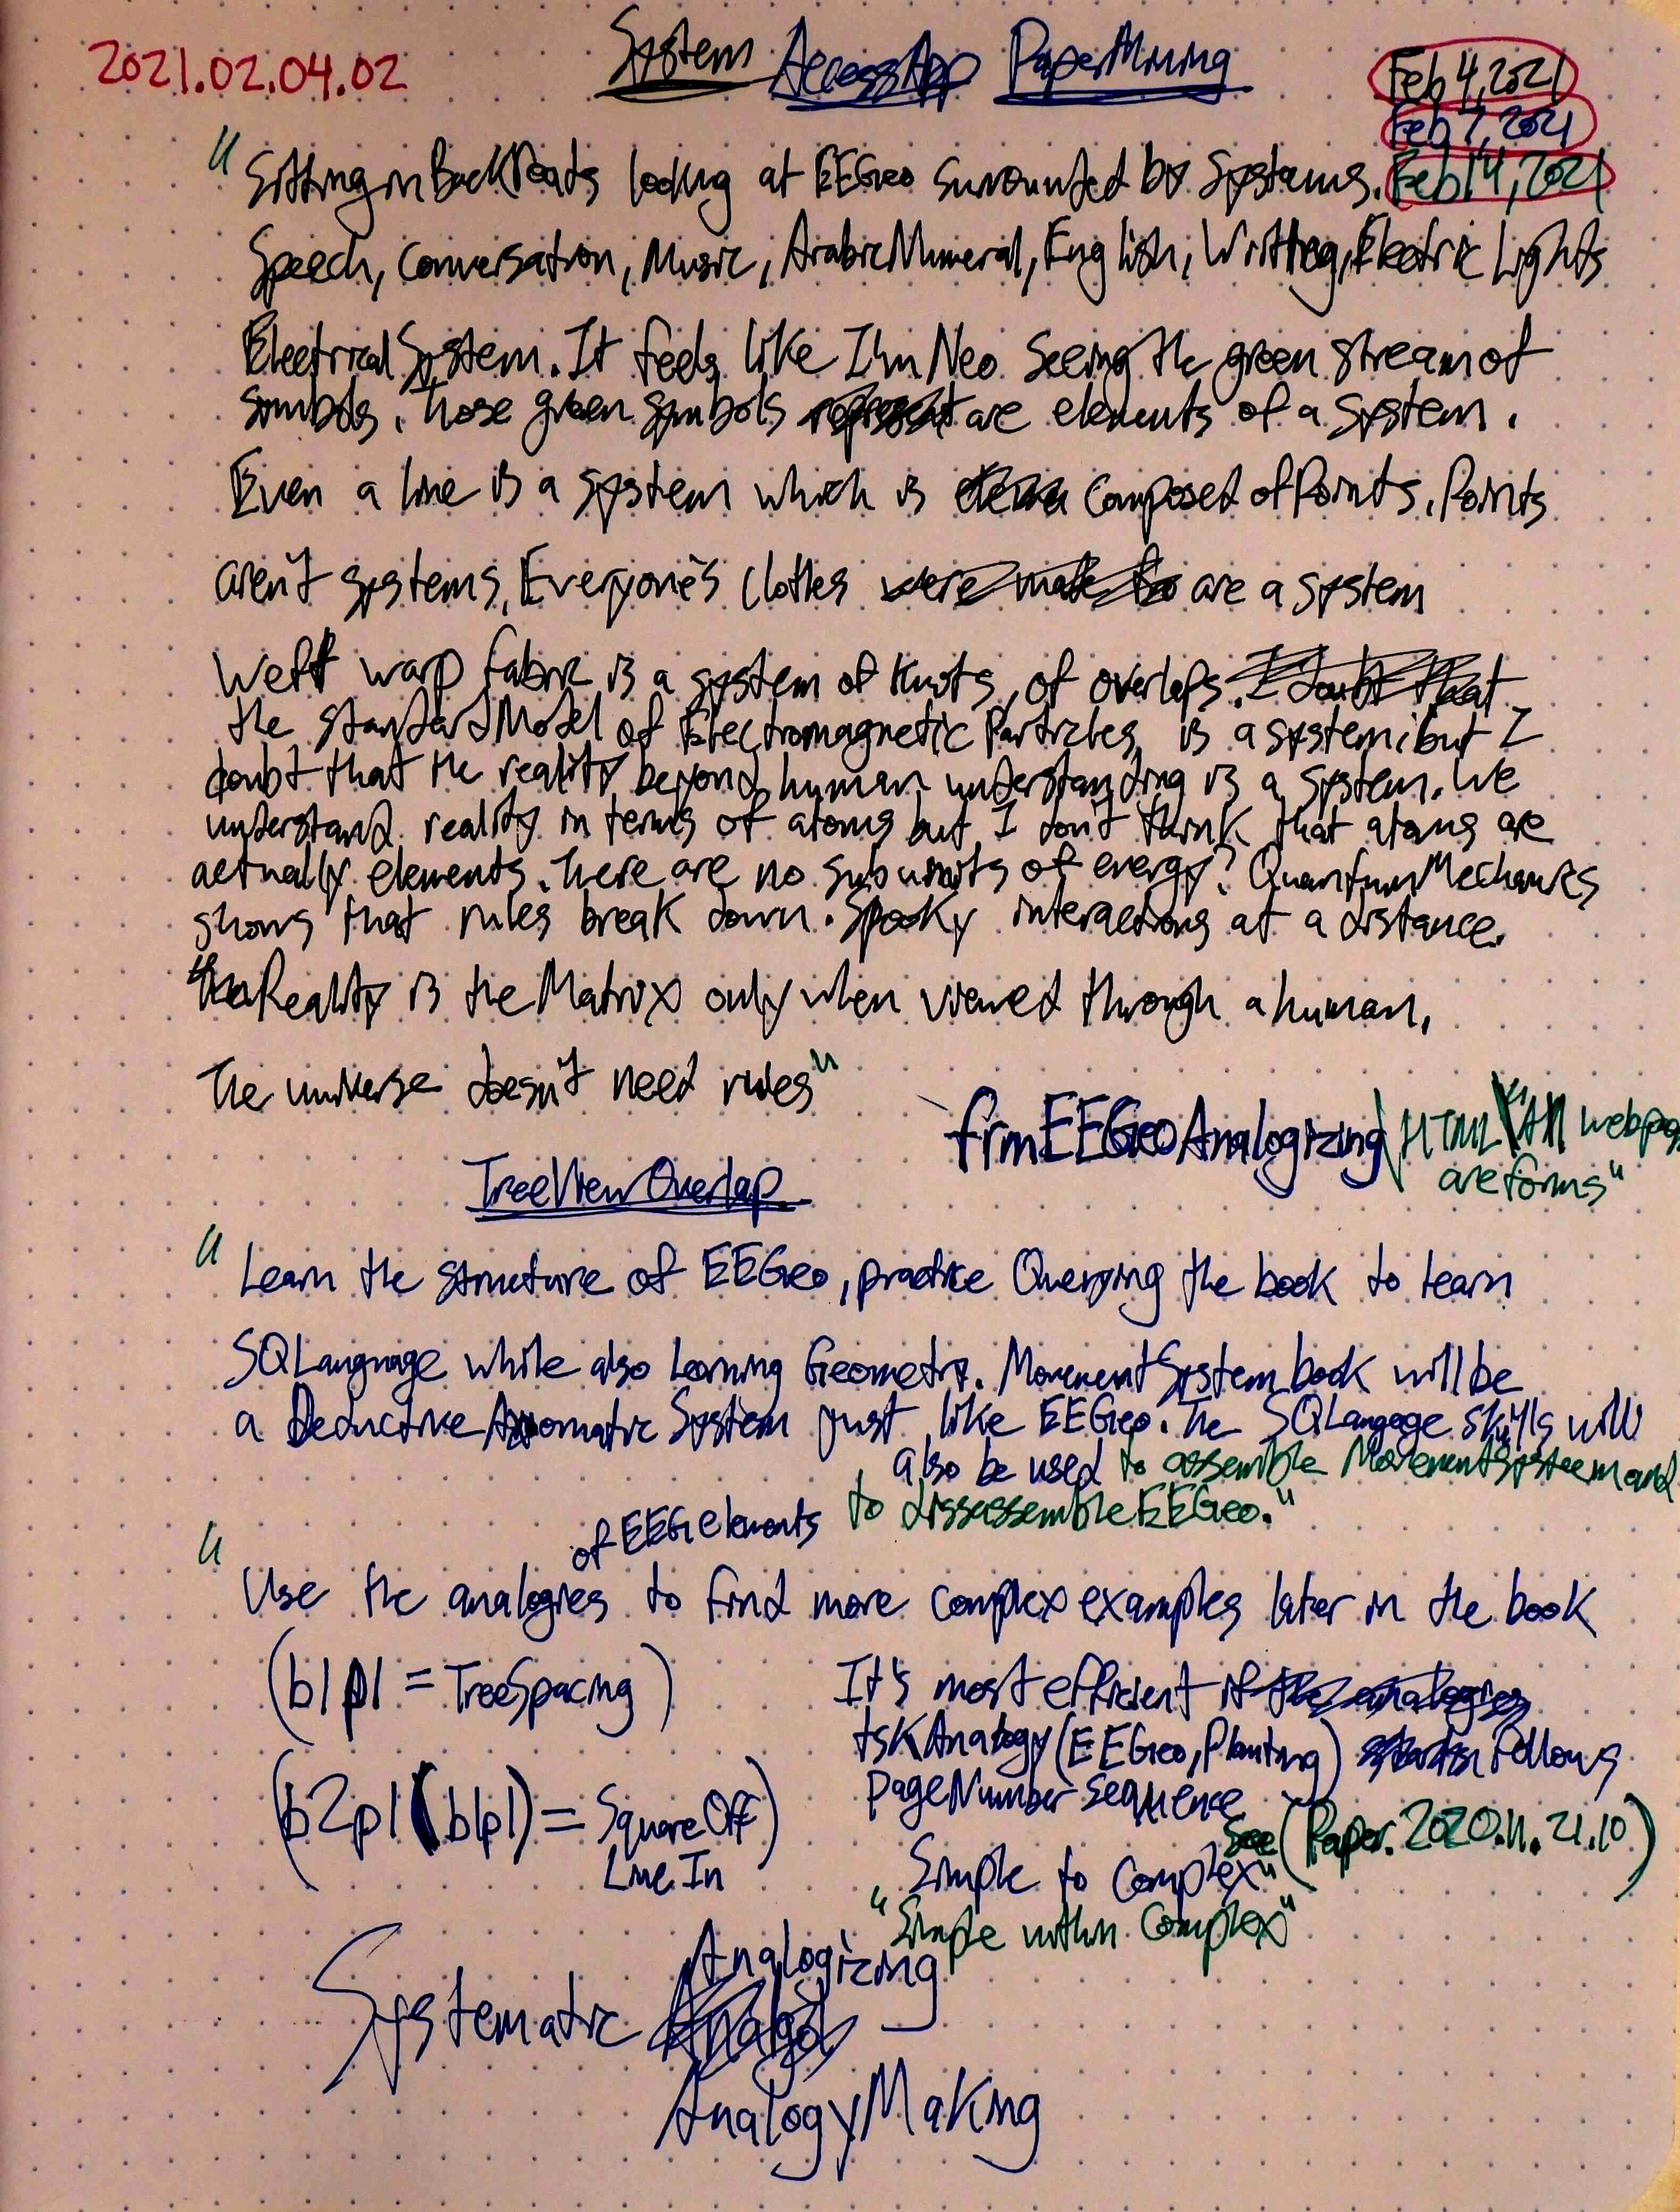 2021.02.04.02
System AccessApp PaperMining
Feb 4, 2021
Feb 7, 2021
Feb 14, 2021
"Sitting in BackRoads looking at EEGeo surrounded by Systems.
Speech, Conversation, Music, ArabicNumeral, English, Writing, Electric Lights
Electrical System. It feels like I'm Neo seeing the green stream of
symbols. Those green symbols represent are elements of a system.
Even a line is a system which is composed of Points. Points
aren't systems. Everyone's clothes were made by are a system
Weft warp fabric is a system of knots, of overlaps. I doubt that
the standard Model of Electromagnetic Particles, is a system; but I
doubt that the reality beyond human understanding is a system. We
understand reality in terms of atoms but I don't think that atoms are
actually elements. There are no subunits of energy? Quantum Mechanics
shows that rules break down. Spooky interactions at a distance.
Reality is the Matrix only when viewed through a human,
The universe doesn't need rules"
frmEEGeoAnalogizing
HTML "All webpages
are forms"
TreeViewOverlap
"Learn the structure of EEGeo, practice Querying the book to learn
SQLanguage while also learning Geometry. MovementSystem book will be
a Deductive Axiomatic System just like EEGeo. The SQLangage skills will
also be used to assemble MovementSysteem and
to dissassemble EEGeo."
of EEG elements
"Use the analogies to find more complex examples later in the book
(b1p1 = TreeSpacing)
It's most efficient if the analogies
tskAnalogy(EEGeo, Planting) follows
pageNumber sequence
(b2p1(b1p1) = SquareOff)
Line In
See (Paper.2020.11.21.10)
Simple to Complex"
"Simple within Complex"
Analogizing
Systematic Analog
AnalogyMaking